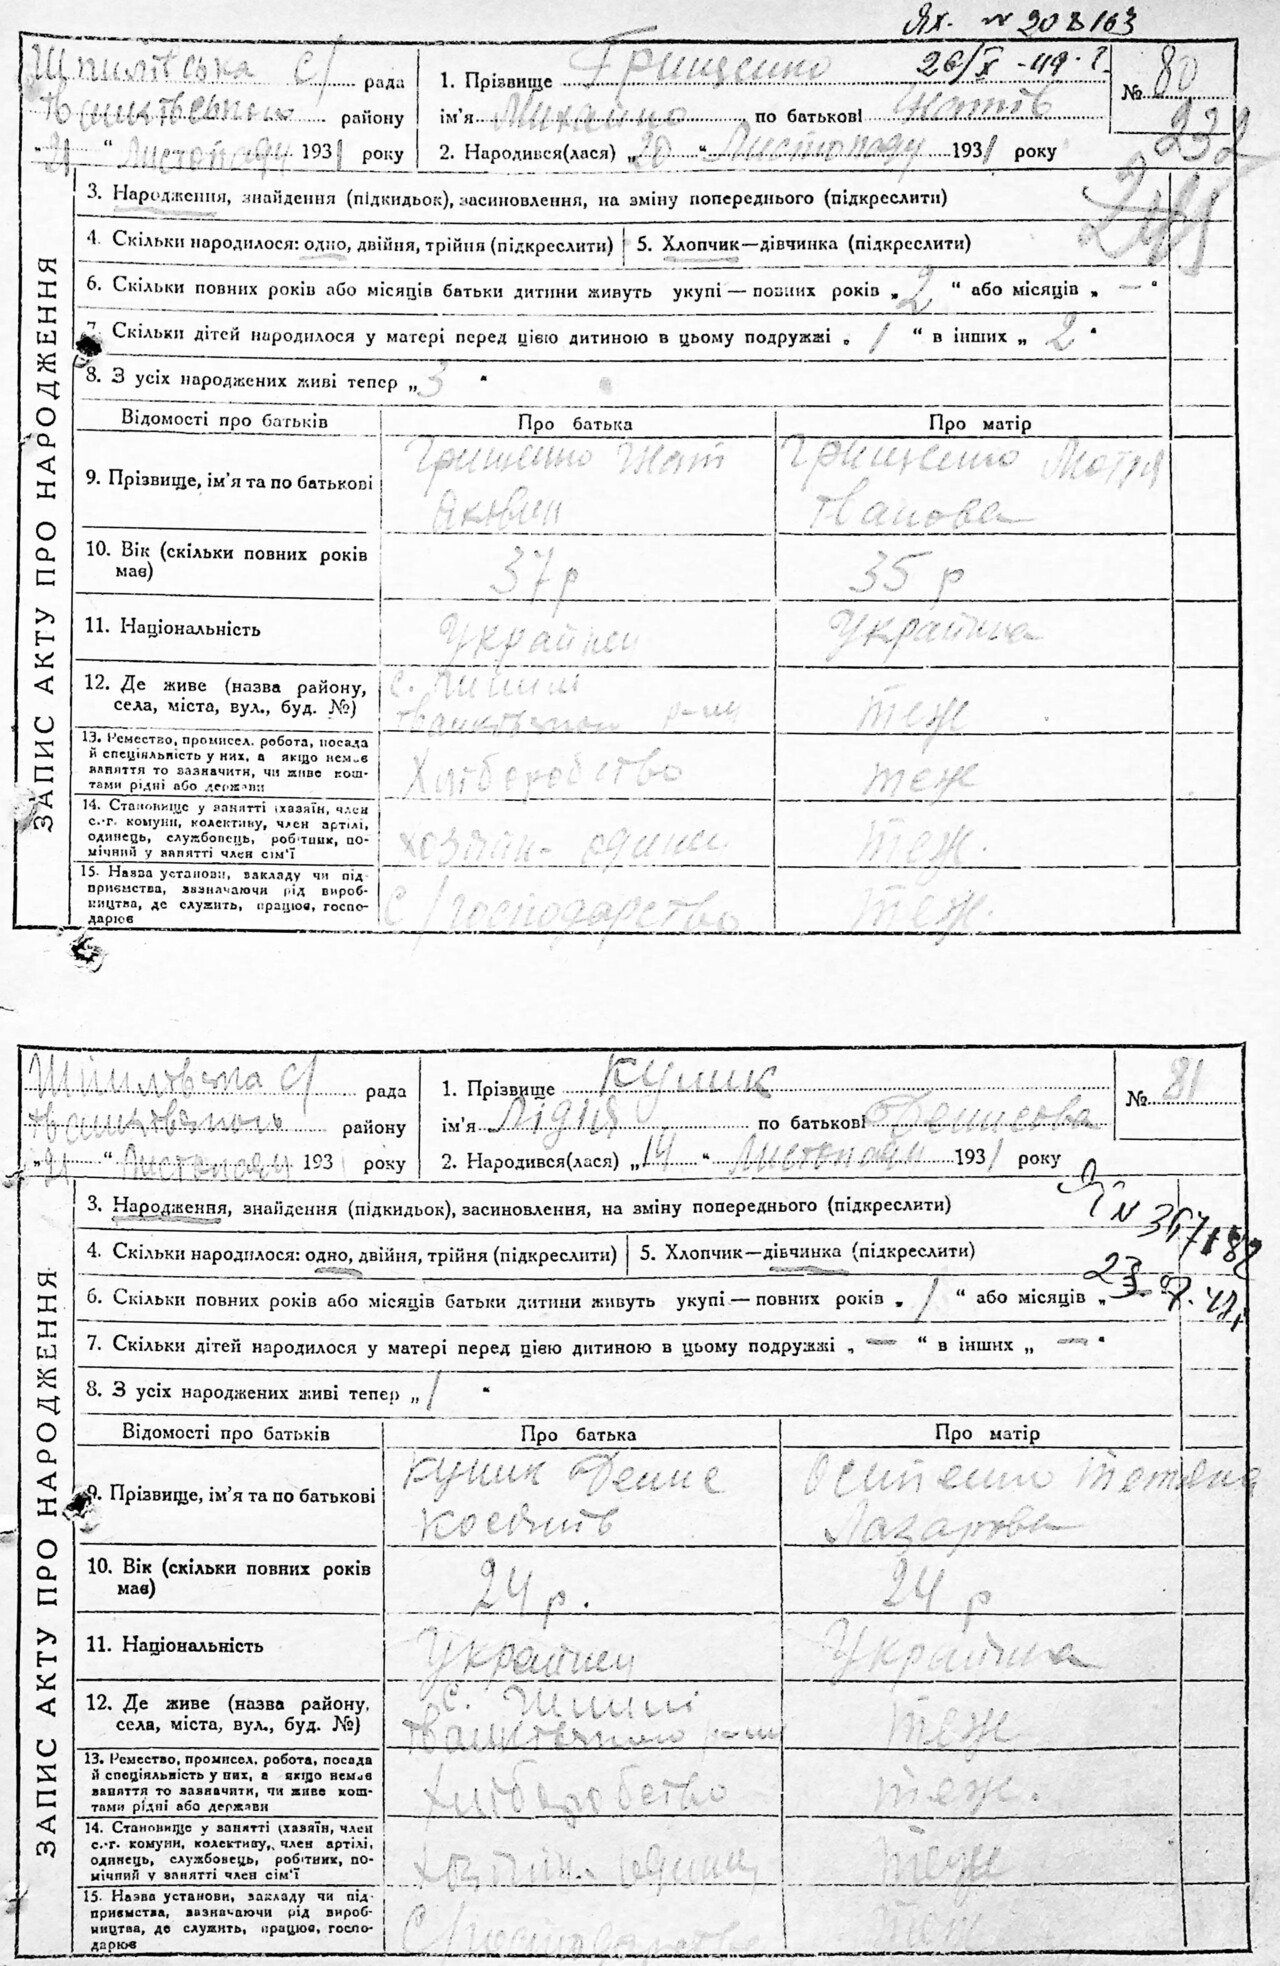 Ях. № 208163
26/X - 49 г.
Шпилівська с/ рада
району
"21" Листопаду 1931 року
1. Прізвище Грищенко
ім'я Михайло по батькові Гнатів
2. Народився(лася) „20" Листопаду 1931 року
№ 80
232
ЗАПИС АКТУ ПРО НАРОДЖЕННЯ
3. Народження, знайдення (підкидьок), засиновлення, на зміну попереднього (підкреслити)
4. Скільки народилося: одно, двійня, трійня (підкреслити) 5. Хлопчик—дівчинка (підкреслити)
6. Скільки повних років або місяців батьки дитини живуть укупі — повних років „ 2 " або місяців „ — "
7. Скільки дітей народилося у матері перед цією дитиною в цьому подружжі „ 1 " в інших „ 2 "
8. З усіх народжених живі тепер „ 3 "
Відомості про батьків Про батька Про матір
9. Прізвище, ім'я та по батькові Грищенко Гнат Грищенко Мотря
Якович Іванова
10. Вік (скільки повних років має) 37 р 35 р
11. Національність Українец Українка
12. Де живе (назва району, села, міста, вул., буд. №) с. Шпилі теж
13. Ремество, промисел, робота, посада й спеціяльність у них, а якщо немає заняття то зазначити, чи живе коштами рідні або держави Хліборобство теж
14. Становище у занятті (хазяїн, член с.-г. комуни, колективу, член артілі, одинець, службовець, робітник, помічний у занятті член сім'ї хозяїн - одинец теж.
15. Назва установи, закладу чи підприємства, зазначаючи рід виробництва, де служить, працює, господарює С/господарство теж.
Шпилівська с/ рада
району
"21" Листопаду 193 року
1. Прізвище Кулик
ім'я Лідія по батькові Денисова
2. Народився(лася) „14" Листопаду 1931 року
№ 81
ЗАПИС АКТУ ПРО НАРОДЖЕННЯ
3. Народження, знайдення (підкидьок), засиновлення, на зміну попереднього (підкреслити)
4. Скільки народилося: одно, двійня, трійня (підкреслити) 5. Хлопчик—дівчинка (підкреслити)
6. Скільки повних років або місяців батьки дитини живуть укупі — повних років „ 1 " або місяців „
7. Скільки дітей народилося у матері перед цією дитиною в цьому подружжі „ — " в інших „ — "
8. З усіх народжених живі тепер „ 1 "
Відомості про батьків Про батька Про матір
9. Прізвище, ім'я та по батькові Кулик Денис Осипенко Тетяна
Лазарова
10. Вік (скільки повних років має) 24 р. 24 р
11. Національність Українец Українка
12. Де живе (назва району, села, міста, вул., буд. №) с. Шпилі теж
13. Ремество, промисел, робота, посада й спеціяльність у них, а якщо немає заняття то зазначити, чи живе коштами рідні або держави Хліборобство теж.
14. Становище у занятті (хазяїн, член с.-г. комуни, колективу, член артілі, одинець, службовець, робітник, помічний у занятті член сім'ї хозяїн - одинец теж
15. Назва установи, закладу чи підприємства, зазначаючи рід виробництва, де служить, працює, господарює С/господарство теж